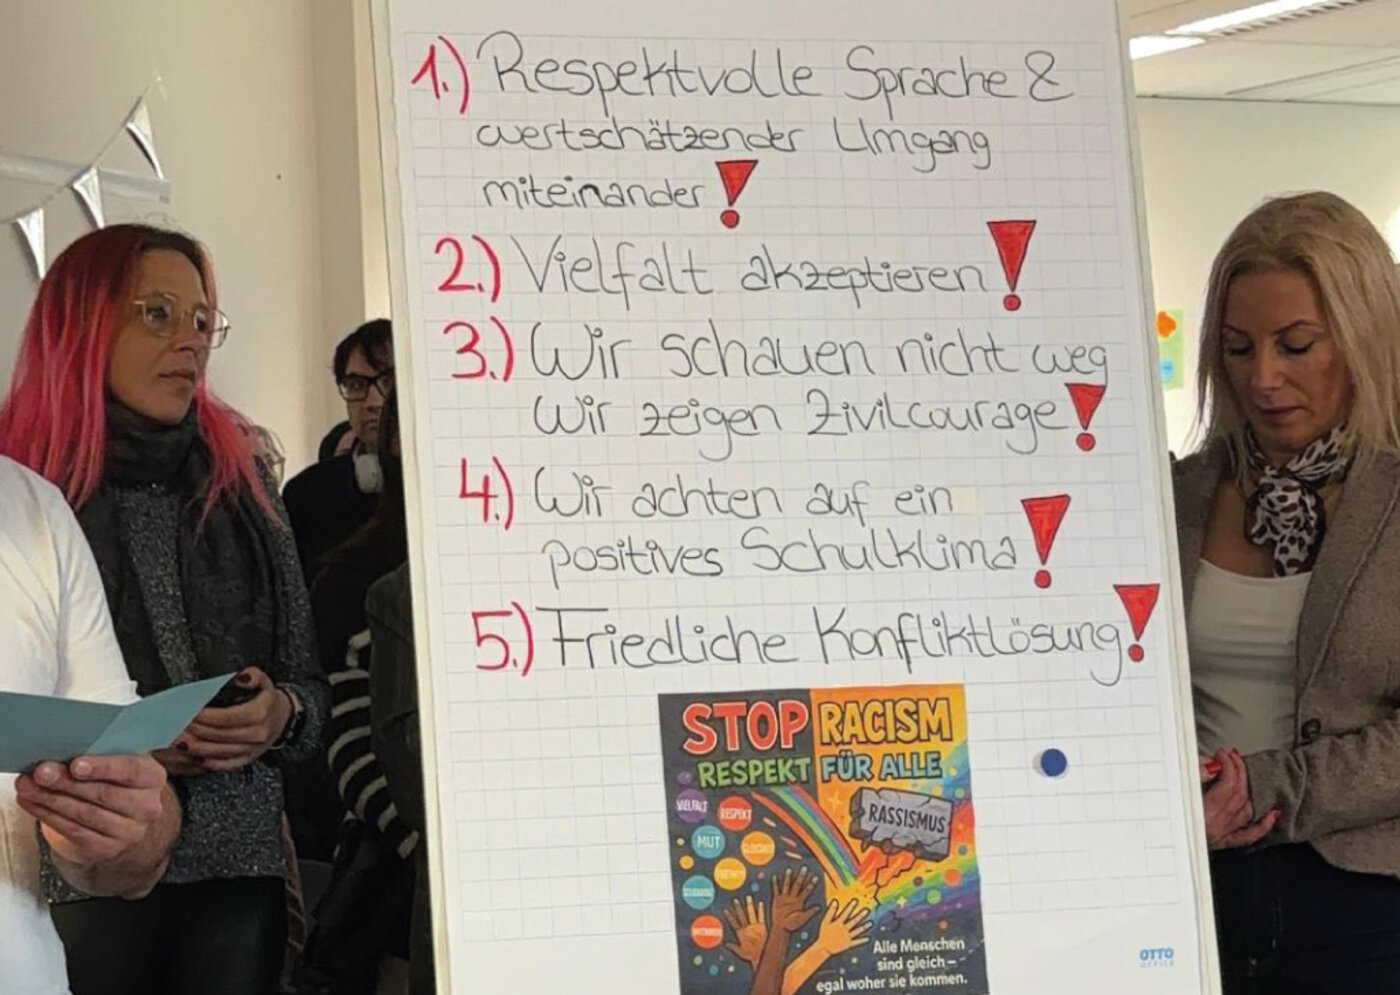 1.) Respektvolle Sprache &
wertschätzender Umgang
miteinander!
2.) Vielfalt akzeptieren!
3.) Wir schauen nicht weg
Wir zeigen Zivilcourage!
4.) Wir achten auf ein
positives Schulklima!
5.) Friedliche Konfliktlösung!
STOP RACISM
RESPEKT FÜR ALLE
VIELFALT
RESPEKT
MUT
RASSISMUS
Alle Menschen
sind gleich –
egal woher sie kommen.
OTTO
OFFICE